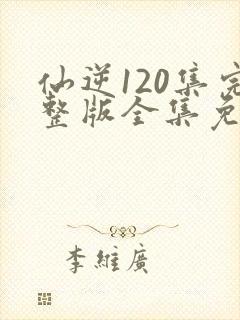 仙逆120集完
整版全集免
李維廣